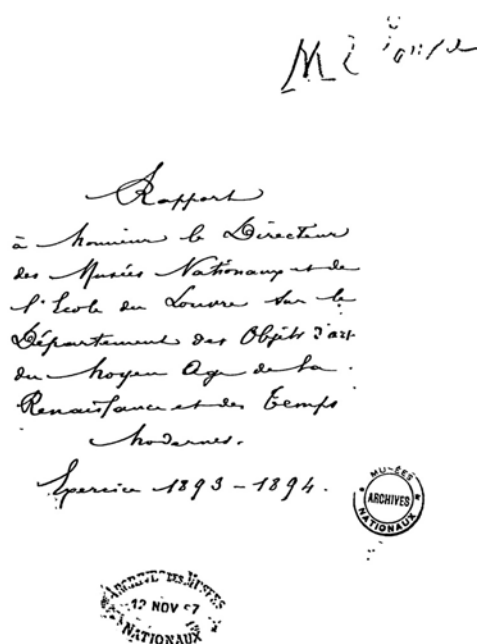 Rapport
à Monsieur le Directeur
des Musées Nationaux et de
l'Ecole du Louvre sur le
Département des Objets d'art
du Moyen Age de la
Renaissance et des Temps
Modernes.
Exercice 1893-1894.
MUSÉES
ARCHIVES
NATIONAUX
ARCHIVES DES MUSÉES
12 NOV 
NATIONAUX